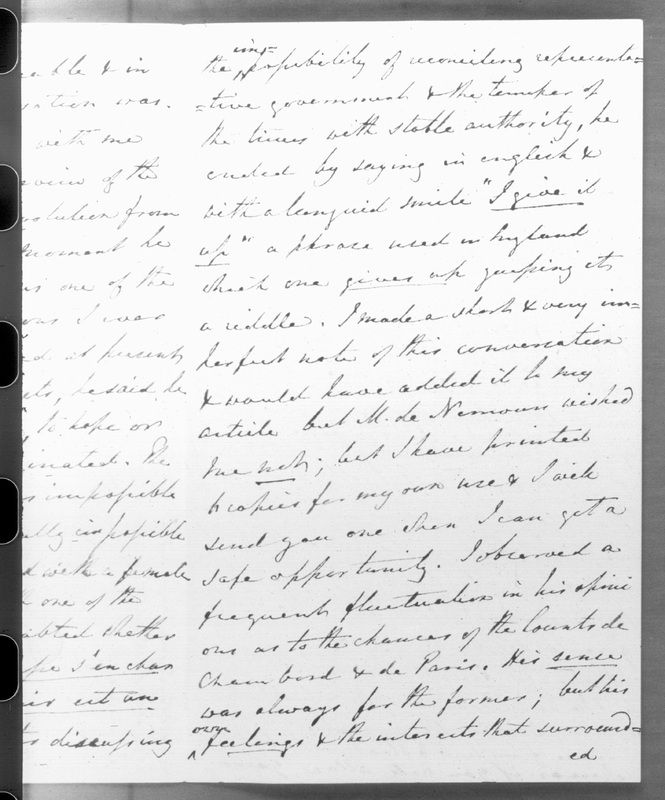 eable & in
ration was.
with me
review of the
volution from
moment he
is one of the
was I was
ed at present
its, he said he
to hope or
inated. The
is impossible
ally impossible
d with a female
h one of the
ubted whether
upe s'en char
ir est un
ts discussing
im-
the possibility of reconciling representa=
=tive government & the temper of
the times with stable authority, he
ended by saying in english &
with a languid smile "I give it
up" a phrase used in England
when one gives up guessing its
a riddle. I made a short & very im=
perfect note of this conversation
& would have added it to my
article but M. de Nemours wished
me not; but I have printed
6 copies for my own use & I will
send you one when I can get a
safe opportunity. I observed a
frequent fluctuation in his opini
ons as to the chances of the Counts de
Chambord & de Paris. His sense
was always for the former; but his
own
feelings & the interests that surround=
ed